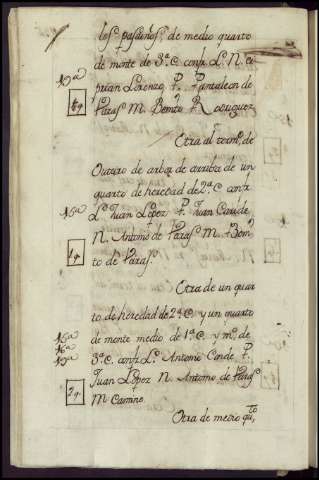 de medio quarto
de monte de 3ª C. confr. L. N. Ci
prian Lorenzo P. Pantaleon de
Paras M. Benito Rodriguez
19ª
Otra al termº de
Outuro de arbor de arriba de un
quarto de heredad de 2ª C. confr.
16ª
Lᵉ Juan Lopez P. Juan Conde
N. Antonio de Paras M. Beni
to de Paras.
1 q.
Otra de un quar
to de heredad de 2ª C. y un quarto
16ª
de monte medio de 1ª C. y mº de
16ª
19ª
3ª C. confr. Lᵉ Antonio Conde P.
Juan Lopez N. Antonio de Paras
2 q.
M. Camino.
Otra de medio qᵗᵒ